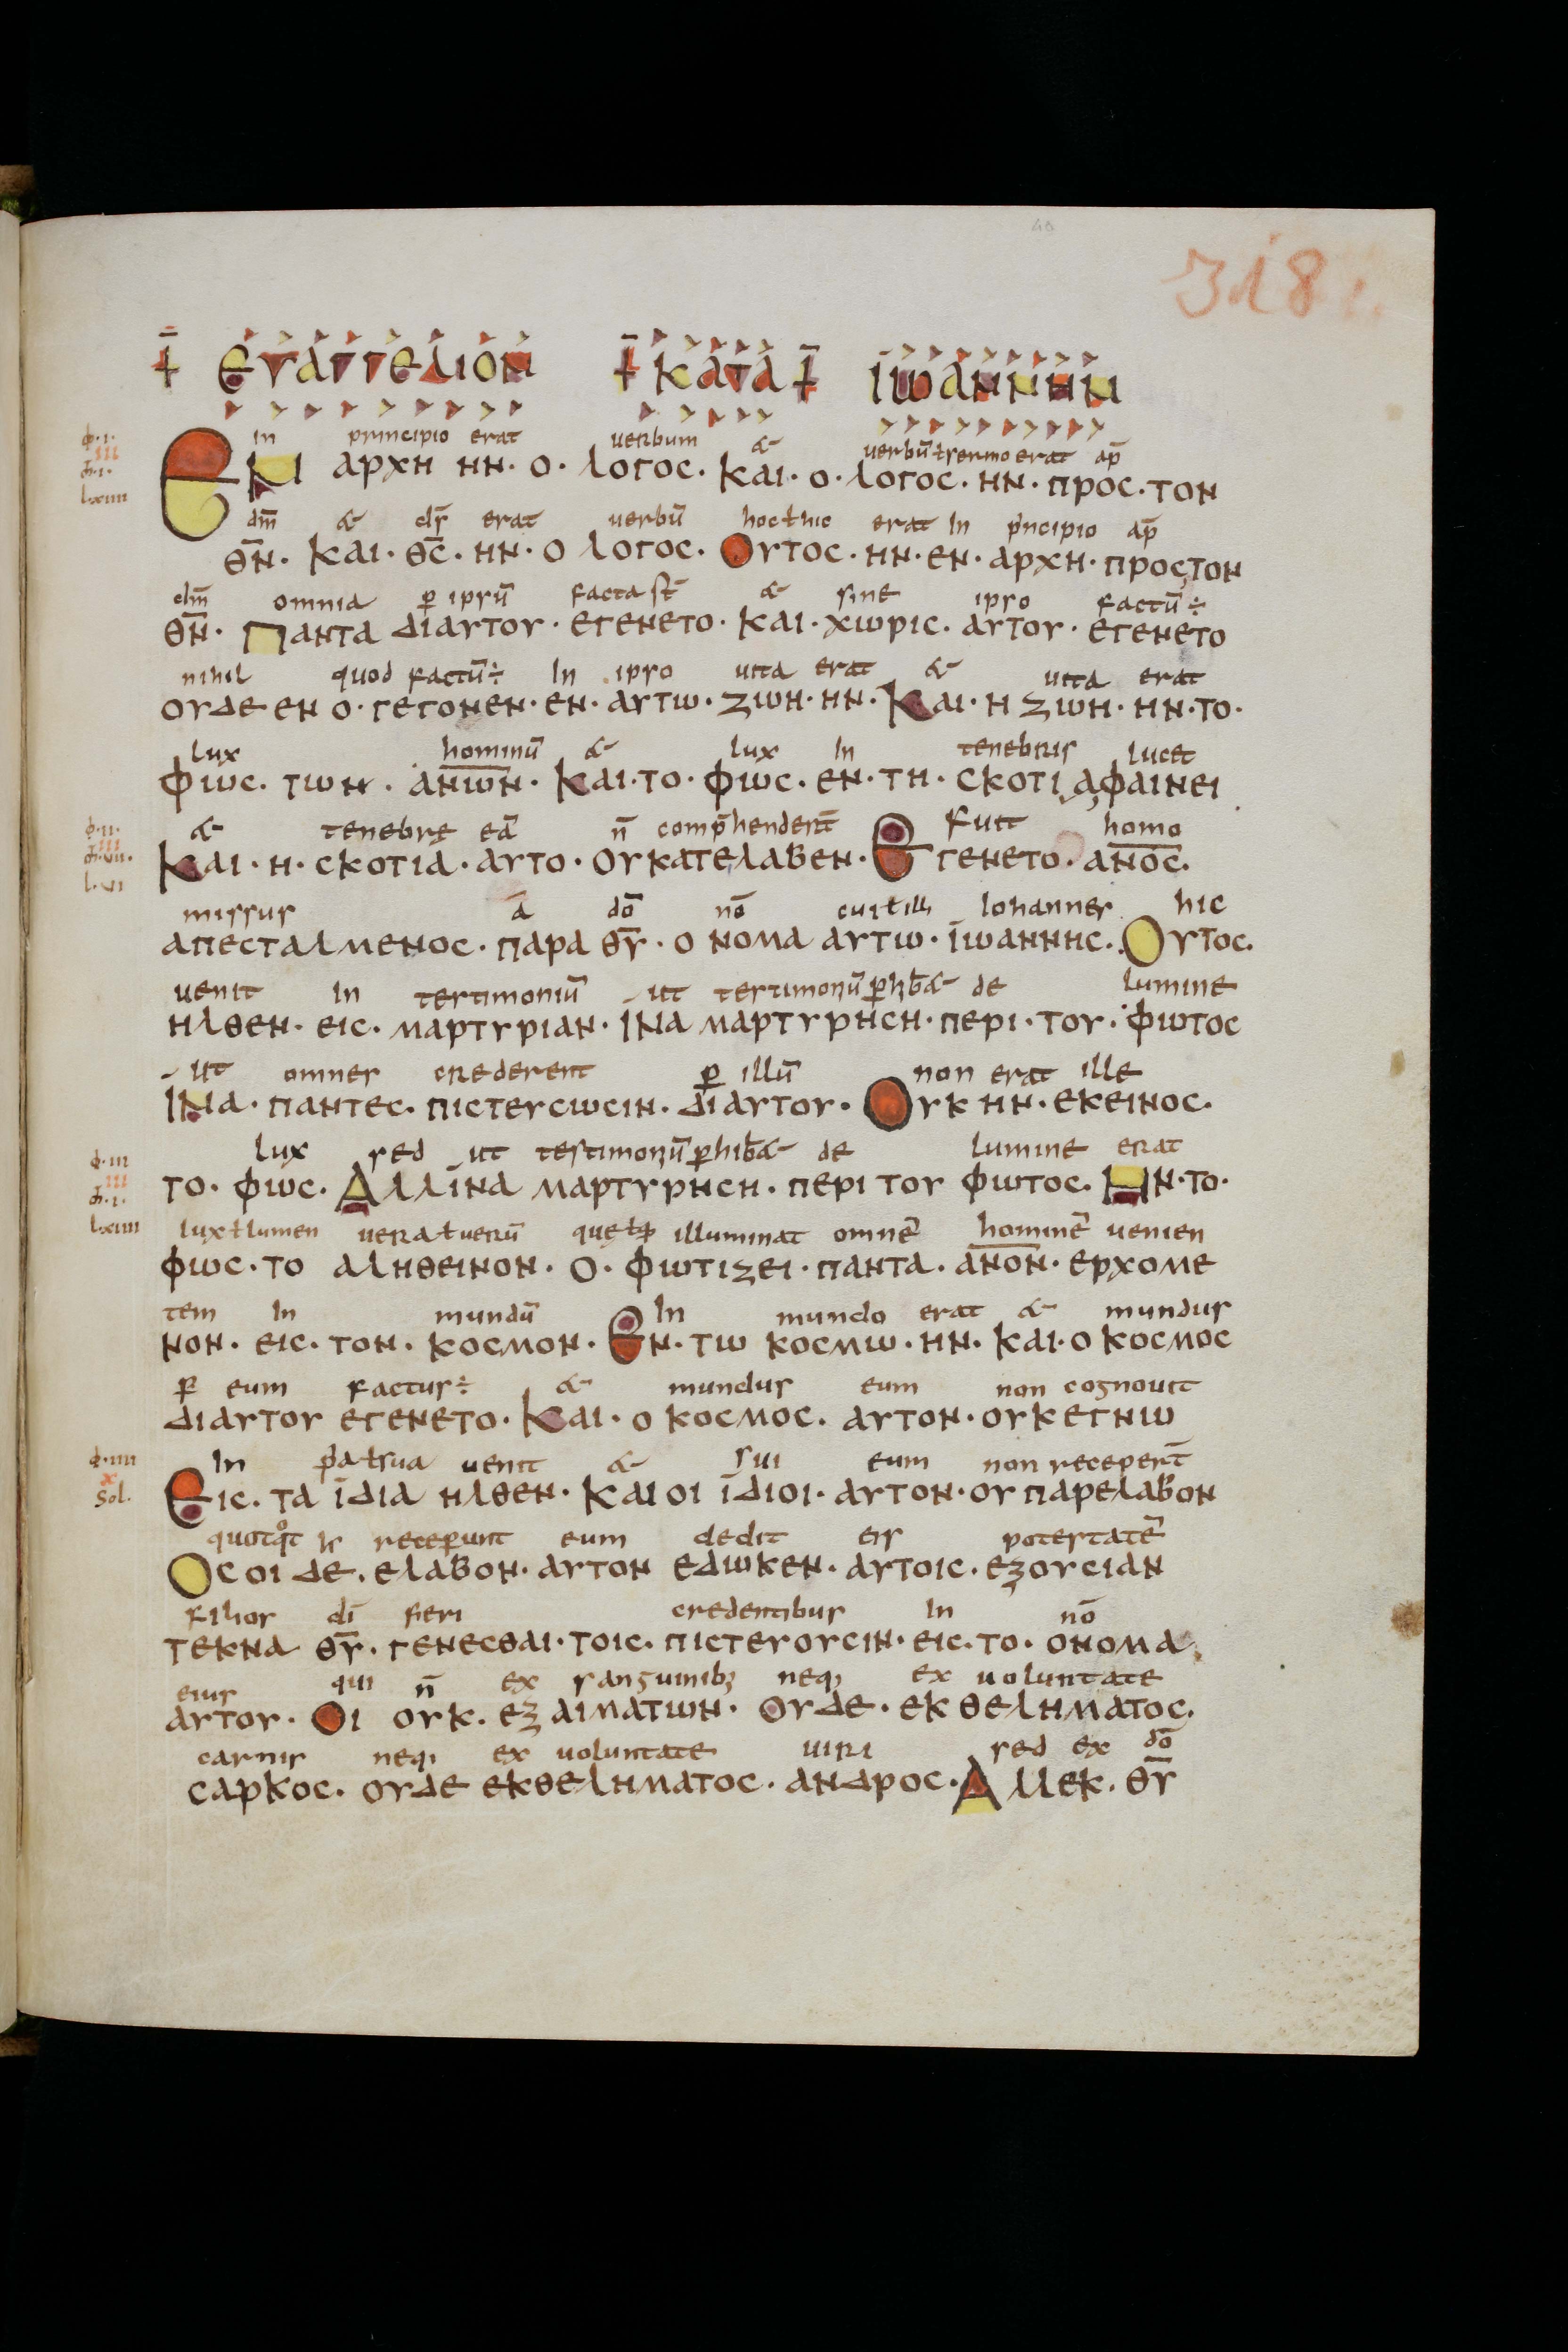 318
‡ ΕΥΑΓΓΕΛΙΟΝ ‡ ΚΑΤΑ ‡ ΙΩΑΝΝΗΝ
in principio erat uerbum & uerbū ƚ sermo erat ap̄
ΕΝ ΑΡΧΗ ΗΝ· Ο· ΛΟΓΟC· ΚΑΙ· Ο· ΛΟΓΟC· ΗΝ· ΠΡΟC· ΤΟΝ
dm̄ & ds̄ erat uerbū hoc ƚ hic erat In pncipio ap̄
Θ̅Ν̅· ΚΑΙ· Θ̅C̅· ΗΝ· Ο ΛΟΓΟC· ΟΥΤΟC· ΗΝ· ΕΝ· ΑΡΧΗ· ΠΡΟC, ΤΟΝ
dm̄ omnia ꝑ ipsū facta st̄ & sine ipso factū÷
Θ̅Ν̅· ΠΑΝΤΑ ΔΙΑΥΤΟΥ· ΕΓΕΝΕΤΟ· ΚΑΙ· ΧΩΡΙC· ΑΥΤΟΥ· ΕΓΕΝΕΤΟ
nihil quod factū÷ In ipso uita erat & uita erat
ΟΥΔΕ ΕΝ Ο· ΓΕΓΟΝΕΝ· ΕΝ· ΑΥΤΩ· ΖΩΗ· ΗΝ· ΚΑΙ· Η ΖΩΗ· ΗΝ· ΤΟ·
lux hominū & lux In tenebris lucet
ΦΩC· ΤΩΝ· Α̅Ν̅Ω̅Ν̅· ΚΑΙ· ΤΟ· ΦΩC· ΕΝ· ΤΗ· CΚΟΤΙ ΑΦΑΙΝΕΙ
& tenebrę eā n̄ comp̄hendert̄ Fuit homo
ΚΑΙ· Η· CΚΟΤΙΑ· ΑΥΤΟ· ΟΥΚΑΤΕΛΑΒΕΝ· ΕΓΕΝΕΤΟ· Α̅Ν̅Ο̅C̅·
missus ā dō nō cui ƚ illi Iohannes hic
ΑΠΕCΤΑΛΜΕΝΟC· ΠΑΡΑ Θ̅Υ̅· Ο ΝΟΜΑ ΑΥΤΩ· ΙΩΑΝΝΗC· ΟΥΤΟC·
uenit in testimoniū ut testimonıū ꝑhib& de lumine
ΗΛΘΕΝ· ΕΙC· ΜΑΡΤΥΡΙΑΝ· ΙΝΑ ΜΑΡΤΥΡΗCΗ· ΠΕΡΙ· ΤΟΥ· ΦΩΤΟC
ut omnes crederent ꝑ illū non erat ille
ΙΝΑ· ΠΑΝΤΕC· ΠΙCΤΕΥCΩCΙΝ· ΔΙΑΥΤΟΥ· ΟΥΚ ΗΝ· ΕΚΕΙΝΟC·
lux sed ut testimonıū ꝑhib& de lumine erat
ΤΟ· ΦΩC· ΑΛΛΙΝΑ ΜΑΡΤΥΡΗCΗ· ΠΕΡΙ ΤΟΥ ΦΩΤΟC· ΗΝ· ΤΟ·
lux ƚ lumen uera ƚ uerū quę ƚ qd illuminat omnē hominē uenien
ΦΩC· ΤΟ ΑΛΗΘΕΙΝΟΝ· Ο· ΦΩΤΙΖΕΙ· ΠΑΝΤΑ· Α̅Ν̅Ο̅Ν̅· ΕΡΧΟΜΕ
tem In mundū In mundo erat & mundus
ΝΟΝ· ΕΙC· ΤΟΝ· ΚΟCΜΟΝ· ΕΝ· ΤΩ ΚΟCΜΩ· ΗΝ· ΚΑΙ· Ο ΚΟCΜΟC
ꝑ eum factus÷ & mundus eum non cognouit
ΔΙΑΥΤΟΥ ΕΓΕΝΕΤΟ· ΚΑΙ· Ο ΚΟCΜΟC· ΑΥΤΟΝ· ΟΥΚΕΓΝΩ
In ꝓpa ƚ sua uenit & sui eum non recepert̄
ΕΙC· ΤΑ ΙΔΙΑ ΗΛΘΕΝ· ΚΑΙ ΟΙ ΙΔΙΟΙ· ΑΥΤΟΝ· ΟΥ ΠΑΡΕΛΑΒΟΝ
quotqot receꝑunt eum dedit eis potestatē
ΟCΟΙ ΔΕ· ΕΛΑΒΟΝ· ΑΥΤΟΝ ΕΔΩΚΕΝ· ΑΥΤΟΙC· ΕΞΟΥCΙΑΝ
filios di fieri credentibus In nō
ΤΕΚΝΑ Θ̅Υ̅· ΓΕΝΕCΘΑΙ· ΤΟΙC· ΠΙCΤΕΥΟΥCΙΝ· ΕΙC· ΤΟ· ΟΝΟΜΑ·
eius qui n̄ ex sanguinibꝫ neq; ex uoluntate
ΑΥΤΟΥ· ΟΙ ΟΥΚ· ΕΞ ΑΙΜΑΤΩΝ· ΟΥΔΕ· ΕΚ ΘΕΛΗΜΑΤΟC·
carnis neq; ex uoluntate uiri sed ex dō
CΑΡΚΟC· ΟΥΔΕ ΕΚΘΕΛΗΜΑΤΟC· ΑΝΔΡΟC· ΑΛΛΕΚ· Θ̅Υ̅